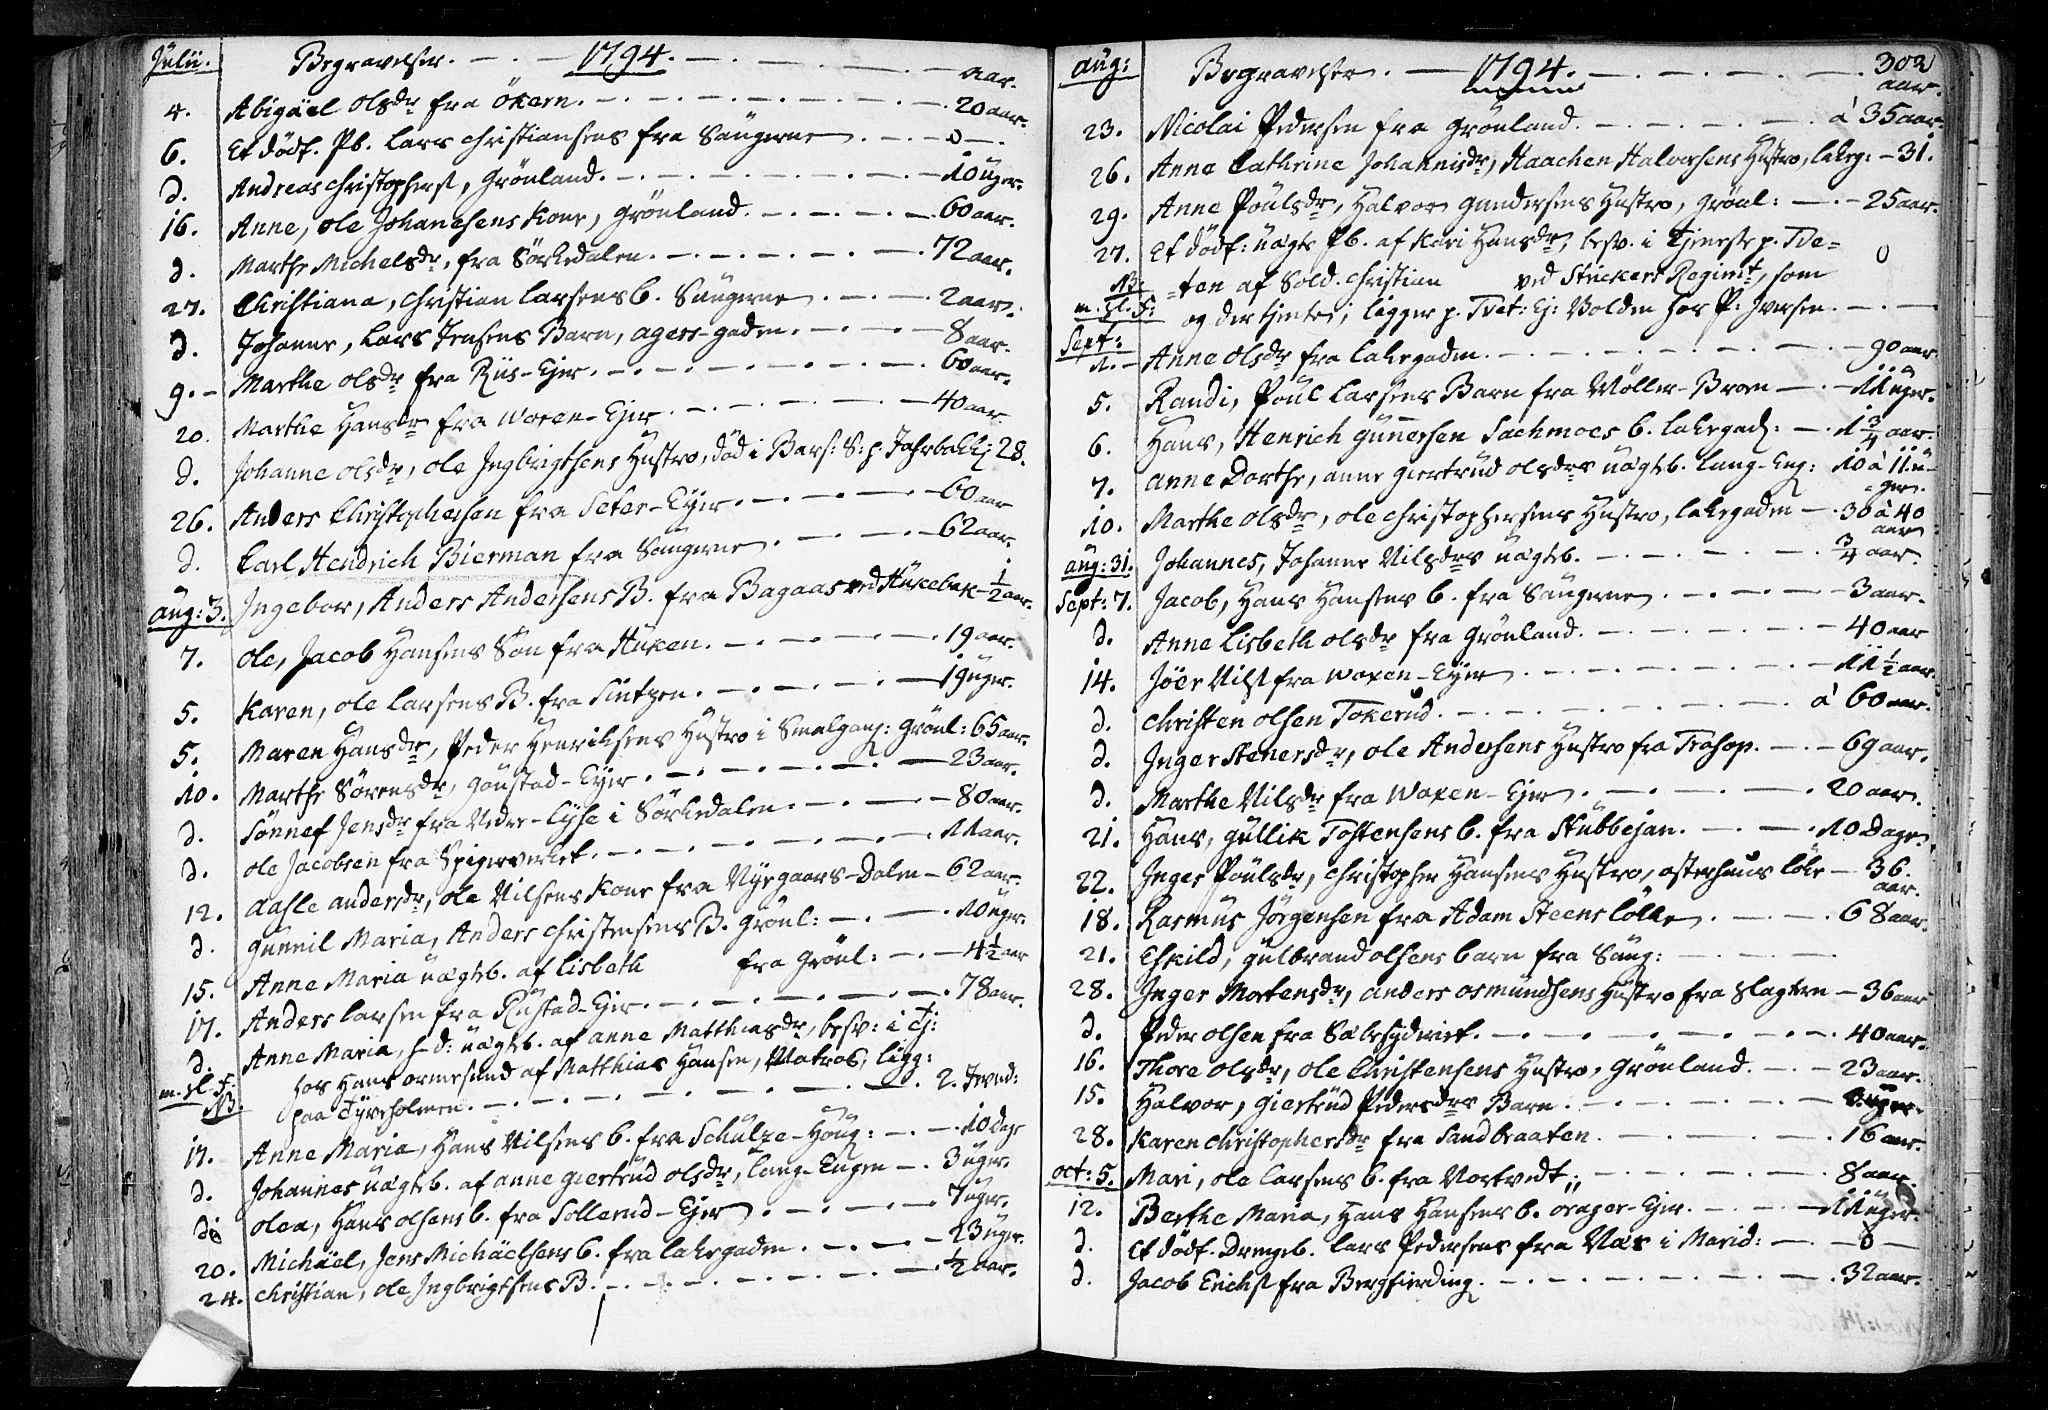 Julii. Begravelser. 1794. aar.
4. Abigäel olsdr fra Økern. 20 aar.
6. Et dödf. Pb. Lars Christiansens fra Saugerne 0
d. Andreas Christophers, Grönland. 10 uger.
16. Anne, ole Johanesens Kone, Grönland. 60 aar.
d. Marthe Michelsdr, fra Sörkedalen. 72 aar.
27. Christiana, Christian Larsens b. Saugerne 2 aar.
d. Johanne, Lars Jensens Barn, agers-gaden. 8 aar.
9. Marthe olsdr fra Riis-Ejer. 60 aar.
20. Marthe Hansdr fra Woxen-Ejer 40 aar.
d. Johanne olsdr, ole Ingbrigthsens Hustro, död i Bars: S: p. Jahrbakk: 28.
26. Anders Christophersen fra Seter-Eyer 60 aar
d. Carl Hendrich Bierman fra Saugerne 62 aar.
aug: 3. Ingebor, Anders Andersens B. fra Bagaas ved Husebak 1/2 aar.
7. ole, Jacob Hansens Søn fra Huken. 19 aar.
5. Karen, ole Larsens B. fra Sintzen 19 uger.
5. Maren Hansdr, Peder Henrichsens Hustro i Smalgang: Grönl: 65 aar.
10. Marthe Sörensdr, Goustad-Eyer. 23 aar.
d. Sönnef Jensdr fra Nedre-Lyse i Sörkedalen 80 aar.
d. ole Jacobsen fra Spigerverket. 11 aar.
12. Aasle andersdr, ole Nilsens Kone fra Nyegaars-Dalen 62 aar.
d. Gunnil Maria, Anders Christensens B. Grönl: 10 uger.
15. Anne Maria uægteb. af Lisbeth fra Grönl: 4 1/2 aar
17. Anders Larsen fra Rustad-Ejer. 78 aar.
d. Anne Maria, s. d: uægteb. af anne Matthiasdr, besv: i Tj:
m. Sl. F: hos Hans ormesund af Matthias Hansen, Matros, ligg:
NB. paa Tyveholmen. 2.
17. Anne Maria, Hans Nilsens b. fra Schulze-Houg: 10 Dage
d. Johannes uægteb. af anne giertrud olsdr, Lang-Engen 3 uger.
d. olea, Hans olsens b. fra Sollerud-Ejer 7 uger.
20. Michäel, Jens Michäelsens b. fra Lakegaden. 23 uger.
24. Christian, ole Ingbrigtsens B. 1/2 aar.
aug: Begravelser. 1794. 302 aar.
23. Nicolai Pedersen fra Grönland. à 35 aar.
26. Anne Cathrine Johannisdr, Haachen Halvorsens Hustro, Lakeg: 31.
29. Anne Poulsdr, Halvor Gundersens Hustro, Grönl: 25 aar.
27. Et dödf: uægte Pb. af Kari Hansdr, besv. i Tjeneste p. Tve=
NB. =ten af Sold. Christian ved Strickers Regimt, som 0
m. Sl. F: og der tjente, ligger p. Tvet: Ej: Volden hos P: Iversen.
Sept:
1. Anne olsdr fra Lakegaden. 90 aar.
5. Randi, Poul Larsens Barn fra Möller-Broen 11 uger.
6. Hans, Henrich Gunersen Sachmoes b. Lakegad: 1 3/4 aar.
7. Anne Dorthe, anne giertrud olsdrs uægteb. Lang-Eng: 10 à 11 u-
=ger.
10. Marthe olsdr, ole Christophersens Hustro, Lakegaden 30 à 40
aar
aug: 31. Johannes, Johanne Nilsdrs uægteb. 3/4 aar.
Sept: 7. Jacob, Hans Hansens b. fra Saugerne 3 aar.
d. Anne Lisbeth olsdr fra Grönland. 40 aar
14. Jöer Nils fra Woxen-Eyer 11 1/2 aar.
d. Christen olsen Tokerud. à 60 aar.
d. Inger Stenersdr, ole Andersens Hustro fra Trosop. 69 aar.
d. Marthe Nilsdr fra Woxen-Ejer 20 aar.
21. Hans, Gullik Tostensens b. fra Stubbejan. 10 Dage
22. Inger Poulsdr, Christopher Hansens Hustro, osterhaus löke 36.
aar.
18. Rasmus Jörgensen fra Adam Steens lökke 68 aar.
21. Eskild, gulbrand olsens barn fra Saug:
28. Inger Mortensdr, anders osmundsens Hustro fra Slagtern 36 aar
d. Peder olsen fra Sabesydriet. 40 aar.
16. Thore olsdr, ole Christensens Hustro, Grönland. 23 aar.
15. Halvor, giertrud Pedersdrs Barn. uger.
28. Karen Christophersdr fra Sandbraaten. 16 aar.
oct: 5. Mari, ole Larsens b. fra Vortvedt 8 aar.
12. Berthe Maria, Hans Hansens b. Ejer. 11 uger.
d. Et dödf. Drengeb. Lars Pedersens fra Næs i Marid: 0
d. Jacob Erichs fra Bergfierding. 32 aar.